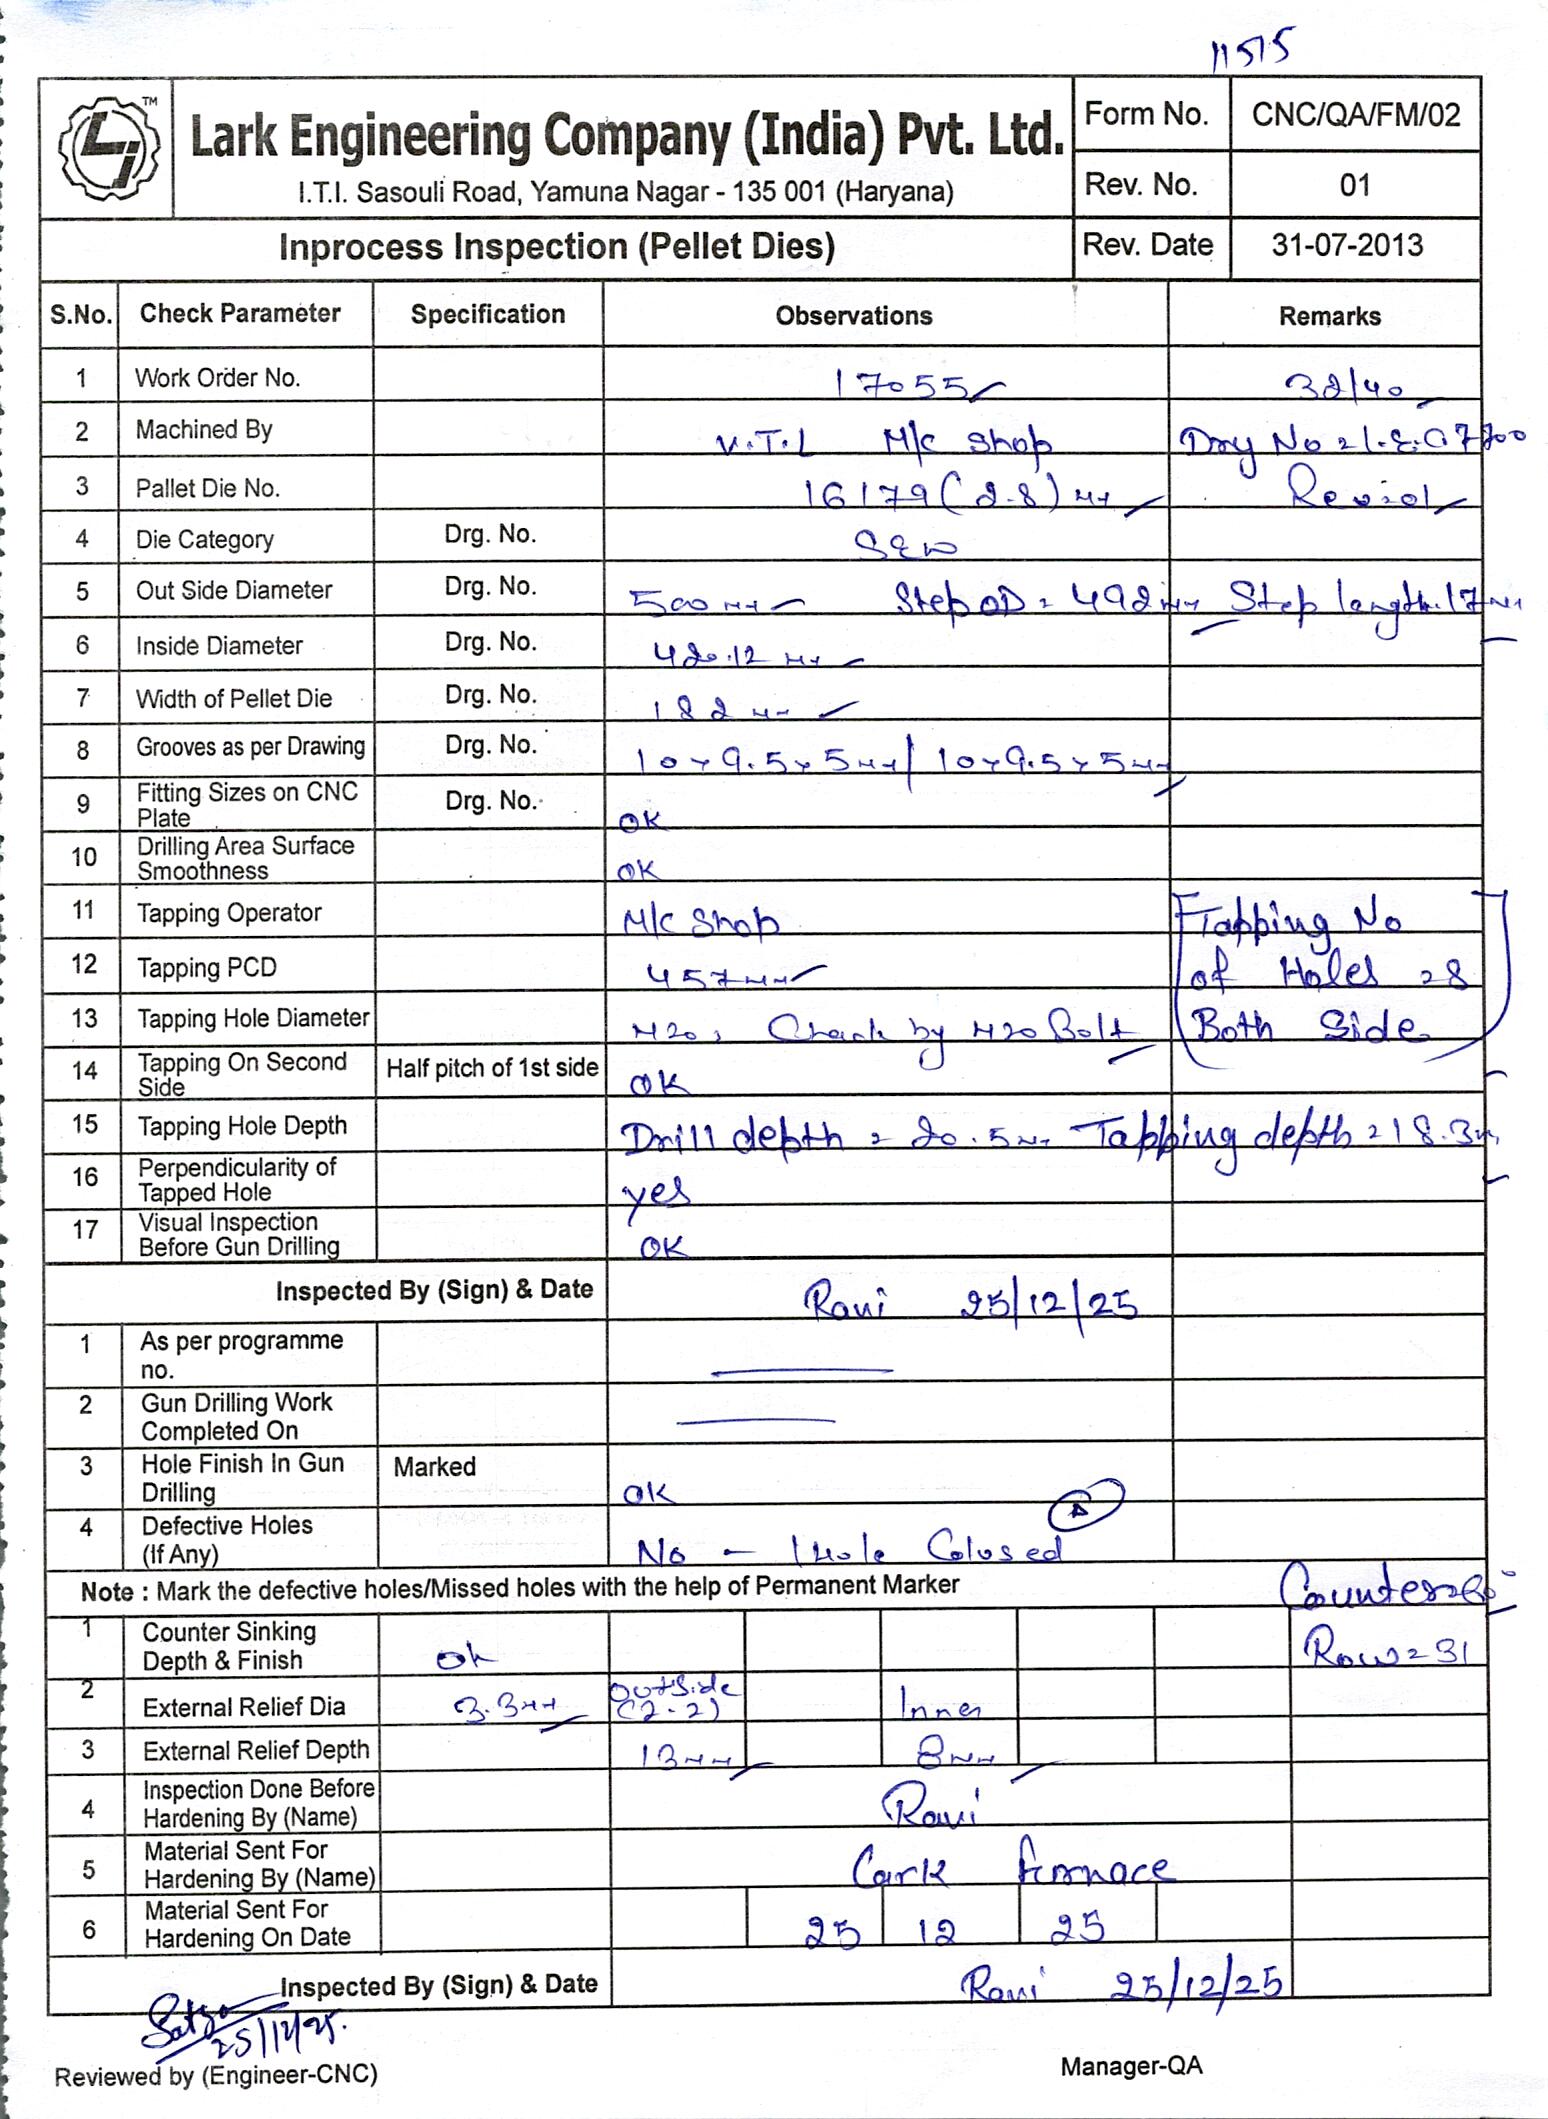 11515
TM
Lark Engineering Company (India) Pvt. Ltd.
I.T.I. Sasouli Road, Yamuna Nagar - 135 001 (Haryana)
Form No. CNC/QA/FM/02
Rev. No. 01
Inprocess Inspection (Pellet Dies) Rev. Date 31-07-2013
S.No. Check Parameter Specification Observations Remarks
1 Work Order No. 17055 32/40
2 Machined By V.T.L M/c Shop No
3 Pallet Die No. 16179 (2.8)
4 Die Category Drg. No.
5 Out Side Diameter Drg. No. 500 Step OD = 492 Step length 17
6 Inside Diameter Drg. No. 420.12
7 Width of Pellet Die Drg. No. 182
8 Grooves as per Drawing Drg. No. 10x9.5x5 / 10x9.5x5
9 Fitting Sizes on CNC Plate Drg. No. OK
10 Drilling Area Surface Smoothness OK
11 Tapping Operator M/c Shop Tapping No
12 Tapping PCD 457 of Holes = 8
13 Tapping Hole Diameter M20, Check by M20 Bolt Both Side
14 Tapping On Second Side Half pitch of 1st side OK
15 Tapping Hole Depth Drill depth = 20.5 Tapping depth = 18.3
16 Perpendicularity of Tapped Hole yes
17 Visual Inspection Before Gun Drilling OK
Inspected By (Sign) & Date Ravi 25/12/25
1 As per programme no.
2 Gun Drilling Work Completed On
3 Hole Finish In Gun Drilling Marked OK
4 Defective Holes (If Any) No - 1 Hole Colused
Note : Mark the defective holes/Missed holes with the help of Permanent Marker
1 Counter Sinking Depth & Finish Ok Row = 31
2 External Relief Dia 3.3 Outside (2-2) Inner
3 External Relief Depth 13 8
4 Inspection Done Before Hardening By (Name) Ravi
5 Material Sent For Hardening By (Name) Lark Furnace
6 Material Sent For Hardening On Date 25 12 25
Inspected By (Sign) & Date Ravi 25/12/25
25/12/25.
Reviewed by (Engineer-CNC) Manager-QA